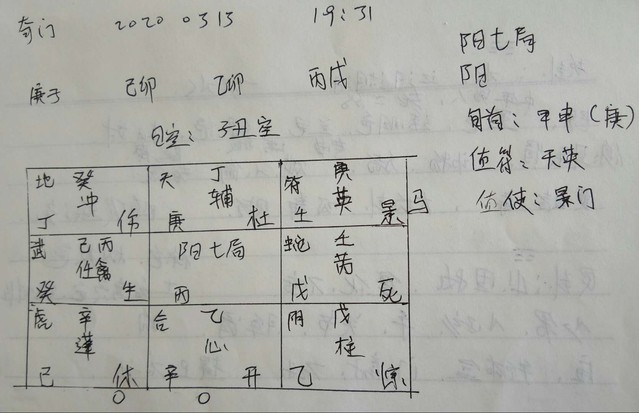 奇门 2020 0313 19:31
阳七局
庚子 己卯 乙卯 丙戌
阳
旬空:子丑空
旬首:甲申(庚)
值符:天英
值使:景门
地 癸 冲 丁 伤
天 丁 辅 庚 杜
符 庚 英 壬 景 马
武 己丙 任禽 癸 生
阳七局 丙
蛇 壬 芮 戊 死
虎 辛 蓬 己 休
合 乙 心 辛 开
阴 戊 柱 乙 惊
○ ○